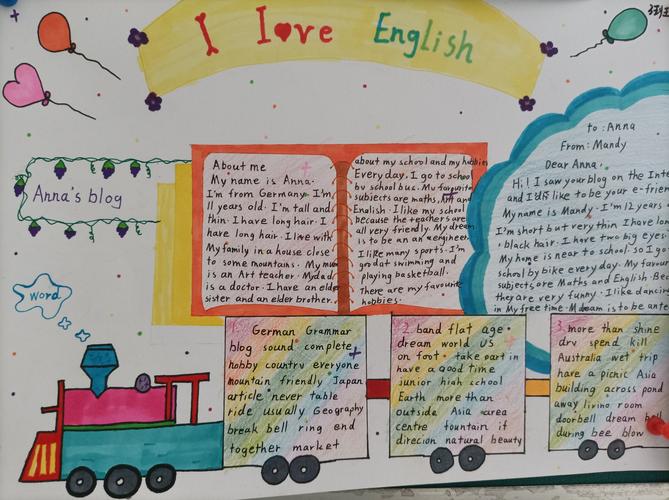 I Love English
Anna's blog
About me
My name is Anna.
I'm from Germany. I'm
11 years old. I'm tall and
thin. I have long hair. I
have long hair. I live with
My family in a house close
to some mountains. My mum
is an Art teacher. My dad
is a doctor. I have an elder
sister and an elder brother.
about my school and my hobbies
Every day. I go to school
by school bus. My favourite
subjects are maths, Art and
English. I like my school
because the teachers are
all very friendly. My dream
is to be an an engineer
I like many sports. I'm
good at swimming and
playing basketball.
there are my favourite
hobbies.
to: Anna
From: Mandy
Dear Anna.
Hi! I saw your blog on the Inte
and I'd like to be your e-frien
My name is Mandy. I'm 12 years
I'm short but very thin I have lon
black hair. I have two big eyes.
My home is near to school. so I go
school by bike every day. My favour
subjects are Maths and English. Bec
they are very funny. I like dancing
in My free time. M dream is to be an
word
1. German Grammar
blog sound complete
hobby country everyone
mountain friendly Japan
article never table
ride usually Geography
break bell ring end
together market
2. band flat age
dream world US
on foot. take part in
have a good time
junior high school
Earth more than
outside Asia area
centre fountain if
direcion natural beauty
3. more than shine
dry spend kill
Australia wet trip
have a picnic Asia
building across pond
away living room
doorbell dream bell
during bee blow